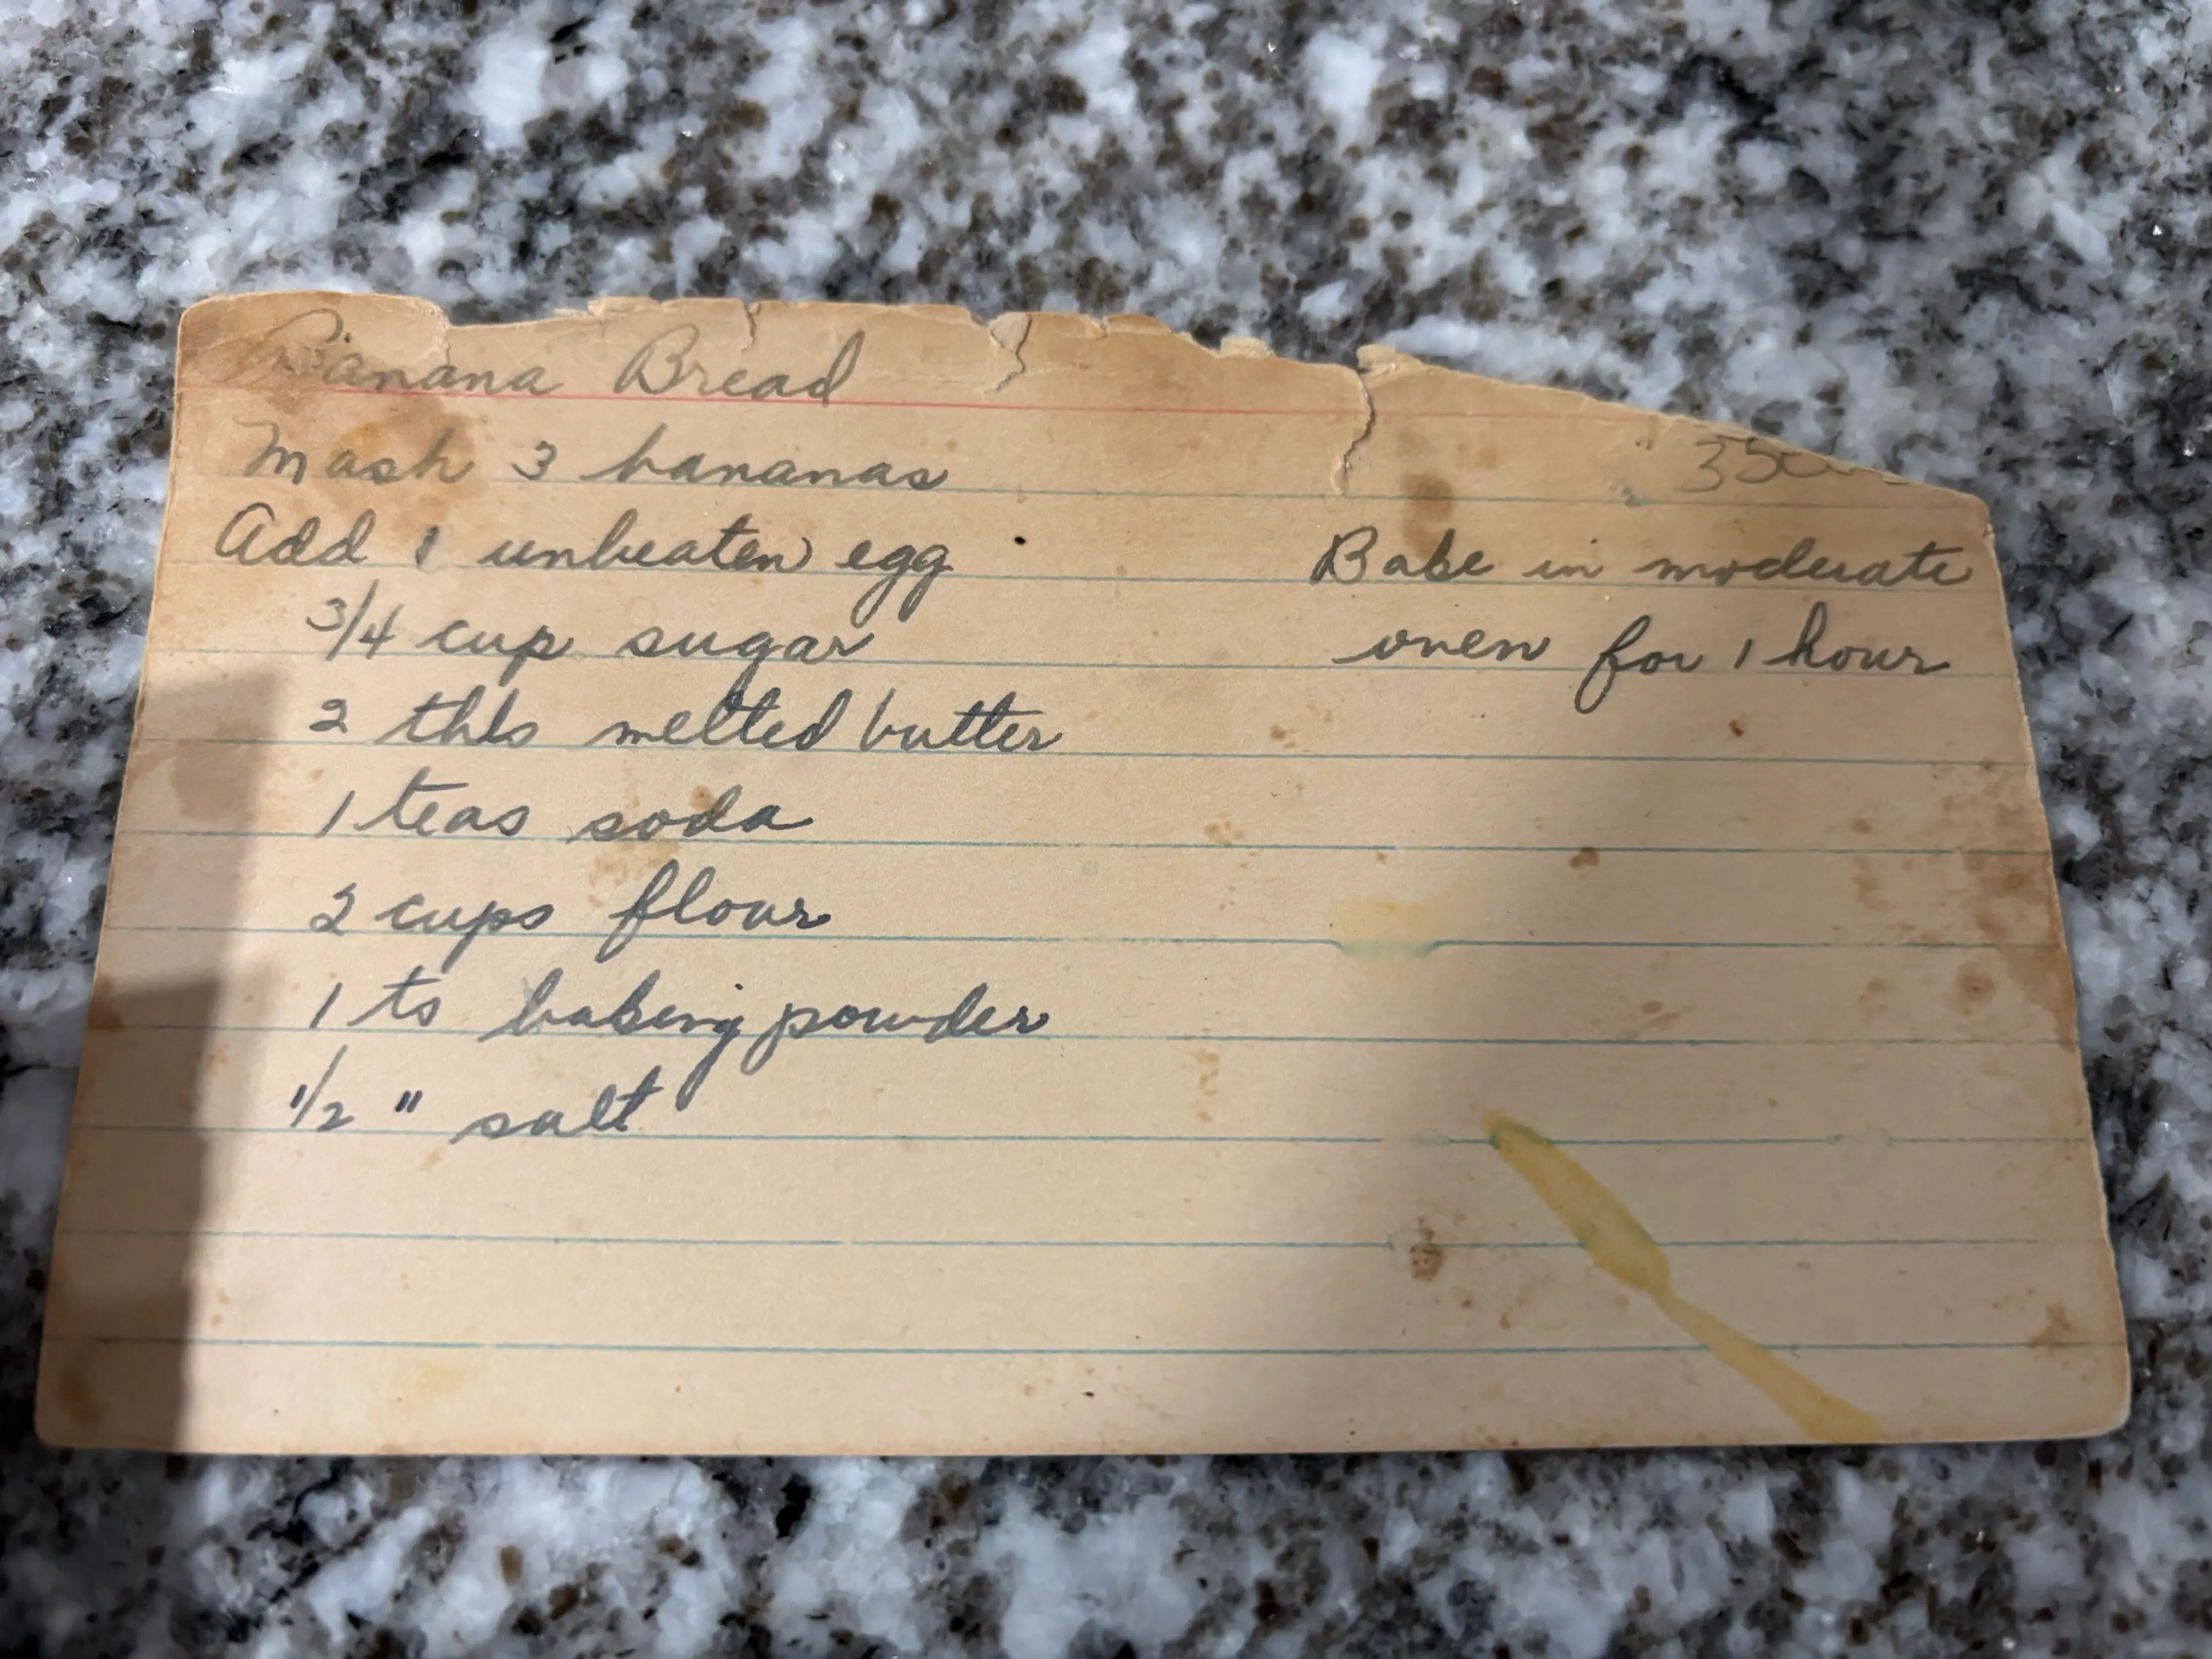 Banana Bread
Mash 3 bananas
350
Add 1 unbeaten egg
Bake in moderate
3/4 cup sugar
oven for 1 hour
2 tbls melted butter
1 teas soda
2 cups flour
1 ts baking powder
1/2 " salt